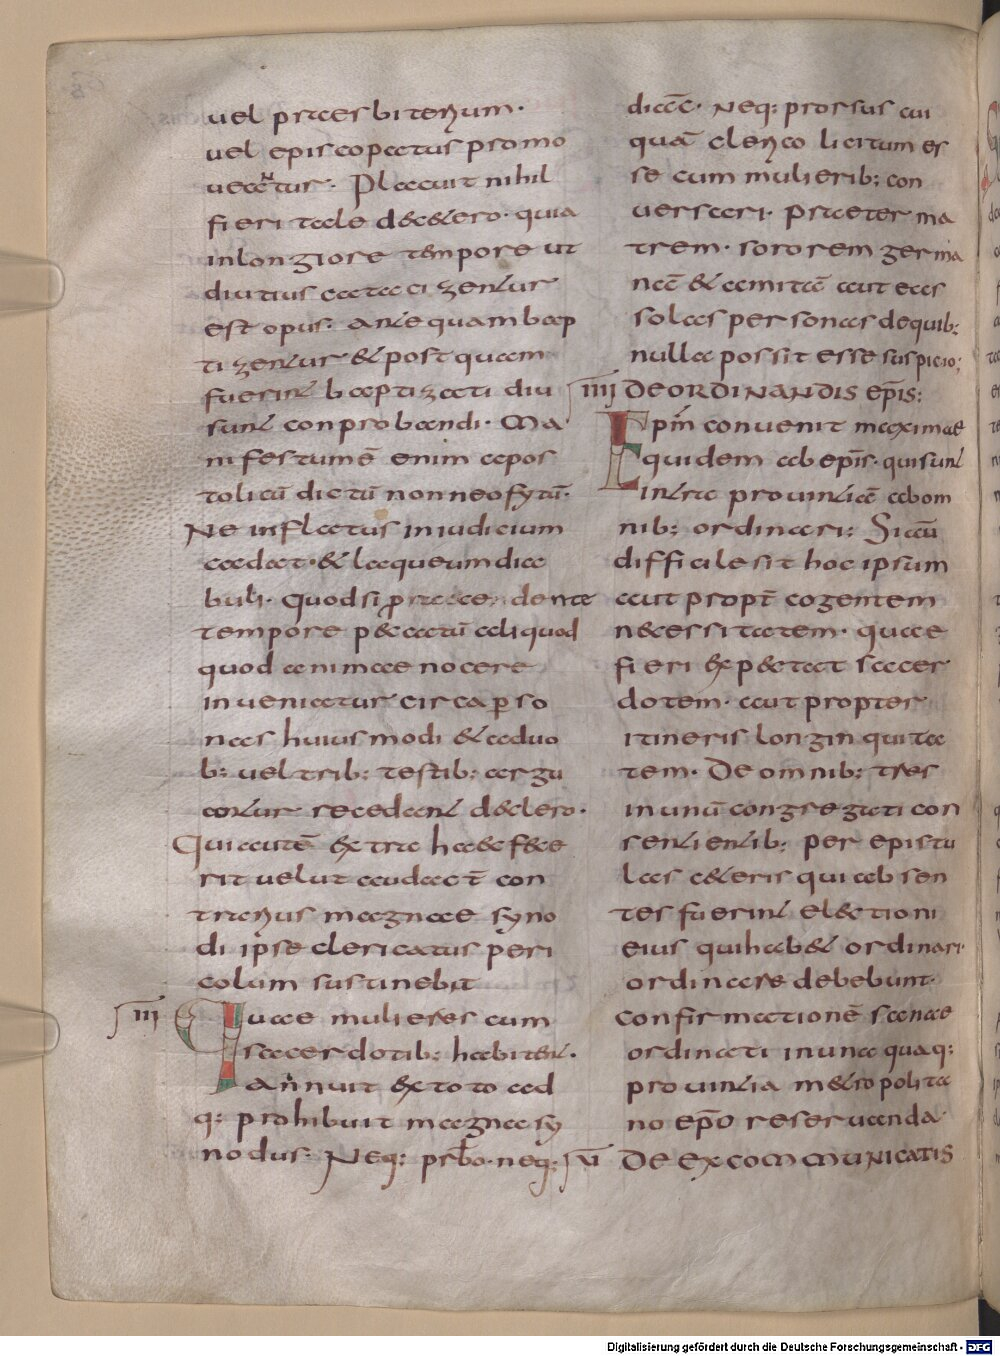 uel praesbiterum·
uel episcopatus promo
ueantur· Placuit nihil
fieri tale de cetero· quia
in longiore tempore ut
diutius catacizentur
est opus· ante quam bap
tizentur & post quam
fuerint baptizati diu
sunt conprobandi· Ma
nifestumē enim apos
tolicū dictū non neofytū·
Ne inflatus in iudicium
cadat· & laqueum dia
buli· Quod si p̲raecedente
tempore peccatū aliquod
quod animae nocere
inueniatur circa p̲so
nas huius modi & a duo
b; uel trib; testib; argu
antur recedant de clero·
Qui autē extra haec fece
rit uelut audact̄ con
trarius magnae syno
di ipse clericatus peri
colum sustinebit
IIII Quae mulieres cum
sacerdotib; habitent·
Annuit ex toto ad
q; prohibuit magna sy
nodus· Neq; prsb̄o· neq;
diacō· Neq; prorsus cui
quā clerico licitum es
se cum mulierib; con
uersari· praeter ma
trem· sororem germa
nā & amitā aut eas
solas personas de quib;
nulla possit esse suspicio;
IIII DE ORDINANDIS EP̄IS:
Ep̄m conuenit maximae
quidem ab ep̄is· qui sunt
intra prouintiā ab om
nib; ordinari: Si aū
difficile sit hoc ipsum
aut propt̄ cogentem
necessitatem· quae
fieri expectat sacer
dotem· aut propter
itineris longinquita
tem· De omnib; tres
in unū congregati con
sentientib; per epistu
las ceteris qui absen
tes fuerint electioni
eius qui habet ordinari·
ordinare debebunt·
confirmationē sanae
ordinati in una quaq;
prouintia metropolita
no ep̄o reseruanda·
VI DE EXCOMMUNICATIS
Digitalisierung gefördert durch die Deutsche Forschungsgemeinschaft - DFG